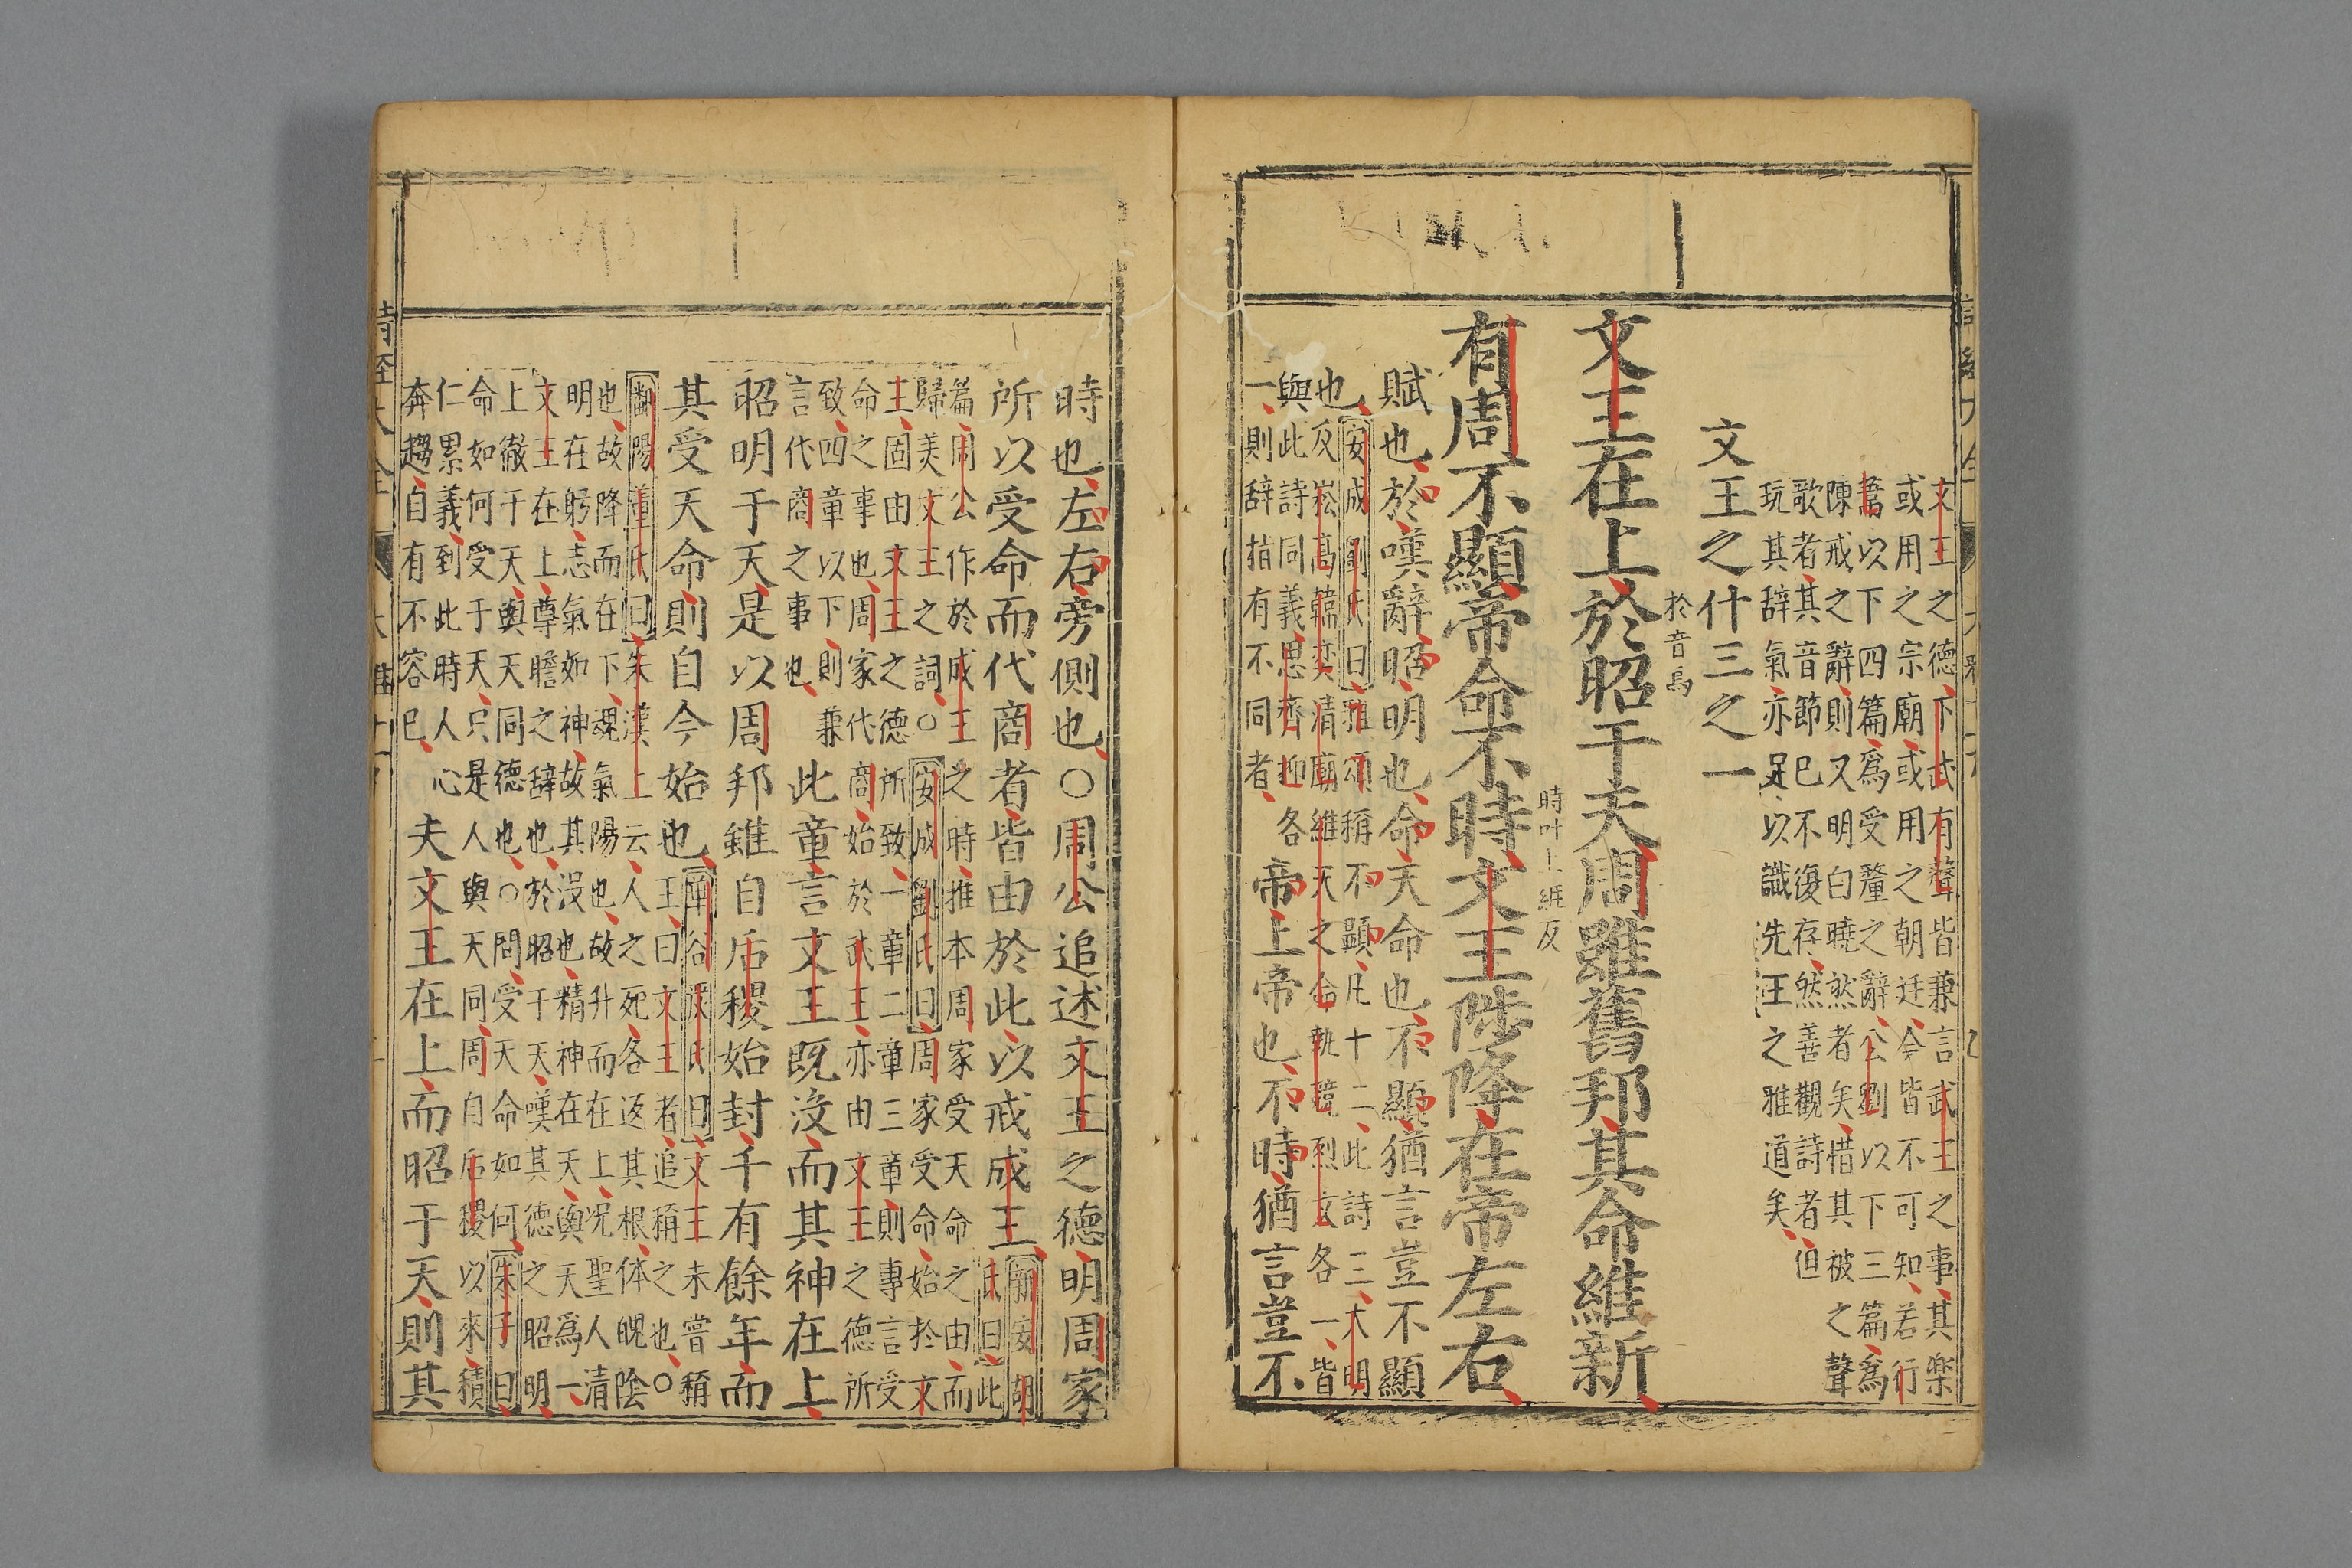 文王之德下武有聲皆兼言武王之事其樂
或用之宗廟或用之朝廷今皆不可知若行
葦以下四篇為受釐之辭公劉以下三篇為
陳戒之辭則又明白曉然者矣惜其被之聲
歌者其音節已不復存然善觀詩者但
玩其辞氣亦足以識先王之雅道矣
文王之什三之一
於音烏
文王在上於昭于天周雖舊邦其命維新
時叶上紙反
有周不顯帝命不時文王陟降在帝左右
賦也於嘆辭昭明也命天命也不顯猶言豈不顯
也安成劉氏曰雅頌稱不顯凡十二此詩三大明
及崧高韓奕清廟維天之命執競烈文各一皆
與此詩同義思齊抑各
一則辞指有不同者
帝上帝也不時猶言豈不
時也左右旁側也○周公追述文王之德明周家
所以受命而代商者皆由於此以戒成王新安胡
氏曰此
篇周公作於成王之時推本周家受天命之由而
歸美文王之詞○安成劉氏曰周家受命始於文
王固由文王之德所致一章二章三章則專言受
命之事也周家代商始於武王亦由文王之德所
致四章以下則兼
言代商之事也
此章言文王既没而其神在上
昭明于天是以周邦雖自后稷始封千有餘年而
其受天命則自今始也南谷成氏曰文王未嘗稱
王曰文王者追稱之也○
鄱陽董氏曰朱漢上云人之死各返其根体魄陰
也故降而在下魂氣陽也故升而在上况聖人清
明在躬志氣如神故其没也精神在天與天為一
文王在上尊瞻之辞也於昭于天嘆其德之昭明
上徹于天與天同德也○問受天命如何朱子曰
命如何受于天只是人與天同周自后稷以來積
仁累義到此時人心
奔趨自有不容已
夫文王在上而昭于天則其